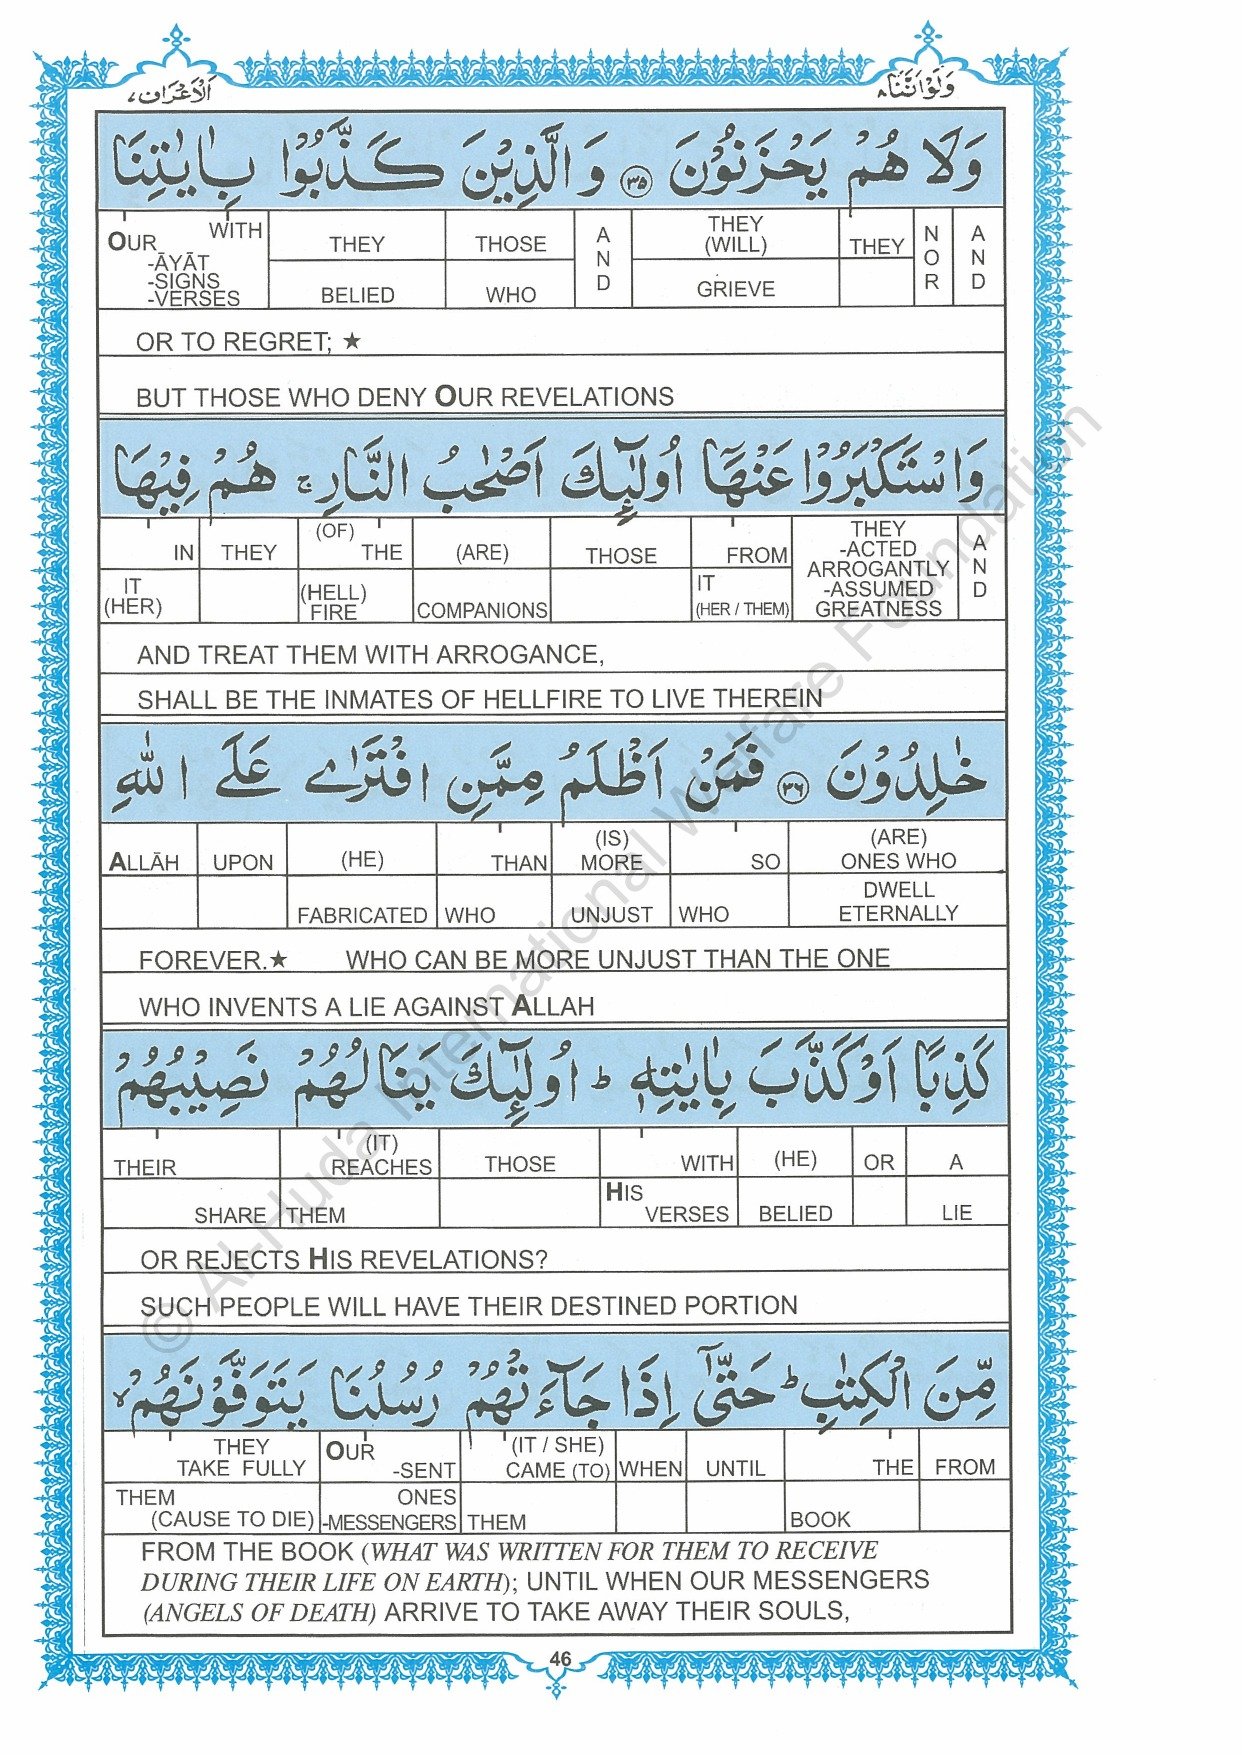 وَلَوْ اَنَّنَا ٨
اَلْاَعْرَاف ٧
وَلَا هُمْ يَحْزَنُوْنَ ﴿٣٥﴾ وَالَّذِيْنَ كَذَّبُوْا بِاٰيٰتِنَا
OUR WITH THEY THOSE A THEY THEY N A
-ĀYĀT N (WILL) O N
-SIGNS BELIED WHO D GRIEVE R D
-VERSES
OR TO REGRET; ★
BUT THOSE WHO DENY OUR REVELATIONS
وَاسْتَكْبَرُوْا عَنْهَآ اُولٰٓئِكَ اَصْحٰبُ النَّارِ ۚ هُمْ فِيْهَا
IN THEY (OF) THE (ARE) THOSE FROM THEY A
IT (HELL) COMPANIONS IT -ACTED N
(HER) FIRE (HER / THEM) ARROGANTLY D
-ASSUMED
GREATNESS
AND TREAT THEM WITH ARROGANCE,
SHALL BE THE INMATES OF HELLFIRE TO LIVE THEREIN
خٰلِدُوْنَ ﴿٣٦﴾ فَمَنْ اَظْلَمُ مِمَّنِ افْتَرٰى عَلَى اللّٰهِ
(IS) (ARE)
ALLĀH UPON (HE) THAN MORE SO ONES WHO
DWELL
FABRICATED WHO UNJUST WHO ETERNALLY
FOREVER.★ WHO CAN BE MORE UNJUST THAN THE ONE
WHO INVENTS A LIE AGAINST ALLAH
كَذِبًا اَوْ كَذَّبَ بِاٰيٰتِهٖ ؕ اُولٰٓئِكَ يَنَالُهُمْ نَصِيْبُهُمْ
(IT)
THEIR REACHES THOSE WITH (HE) OR A
HIS
SHARE THEM VERSES BELIED LIE
OR REJECTS HIS REVELATIONS?
SUCH PEOPLE WILL HAVE THEIR DESTINED PORTION
مِّنَ الْكِتٰبِ ؕ حَتّٰىٓ اِذَا جَآءَتْهُمْ رُسُلُنَا يَتَوَفَّوْنَهُمْ ۙ
THEY OUR (IT / SHE)
TAKE FULLY -SENT CAME (TO) WHEN UNTIL THE FROM
THEM ONES
(CAUSE TO DIE) -MESSENGERS THEM BOOK
FROM THE BOOK (WHAT WAS WRITTEN FOR THEM TO RECEIVE
DURING THEIR LIFE ON EARTH); UNTIL WHEN OUR MESSENGERS
(ANGELS OF DEATH) ARRIVE TO TAKE AWAY THEIR SOULS,
46
© Al-Huda International Welfare Foundation